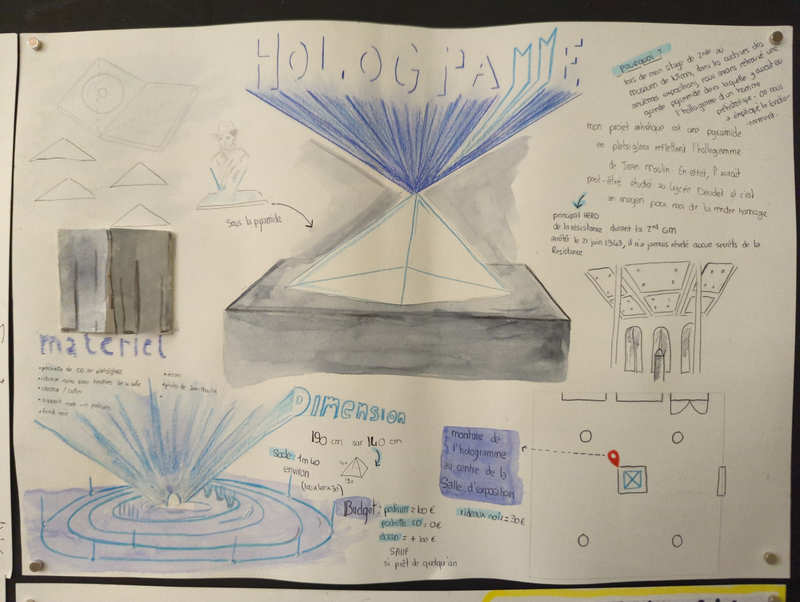 HOLOGRAMME
Pourquoi ?
lors de mon stage de 2nde au
museum de Nîmes, dans les archives des
anciennes expositions, nous avons retrouvé une
grande pyramide dans laquelle y avait eu
l'hologramme d'un homme
préhistorique. On nous
a expliqué le fonction
-nement.
mon projet artistique est une pyramide
en pleixiglass reflettant l'hollogramme
de Jean Moulin. En effet, il aurait
peut-être étudié au Lycée Daudet et c'est
un moyen pour moi de lui rendre hommage
principal HERO
de la résistance durant la 2nd GM
arrêté le 21 juin 1943, il n'a jamais révélé aucun secrets de la
Resistance
sous la pyramide
materiel
• pochette de CD en pleixiglass
• rideaux noirs pour fenêtres de la salle
• cutter
• support noir → podium
• fond noir
• écran
Dimension
190 cm sur 140 cm
socle : 1m40
environ
Budget : podium = 100 €
pochette CD : 0€
écran = + 100 €
SAUF
si prêt de quelqu'un
monture de
l'hologramme
au centre de la
Salle d'exposition
rideaux noirs = 30€